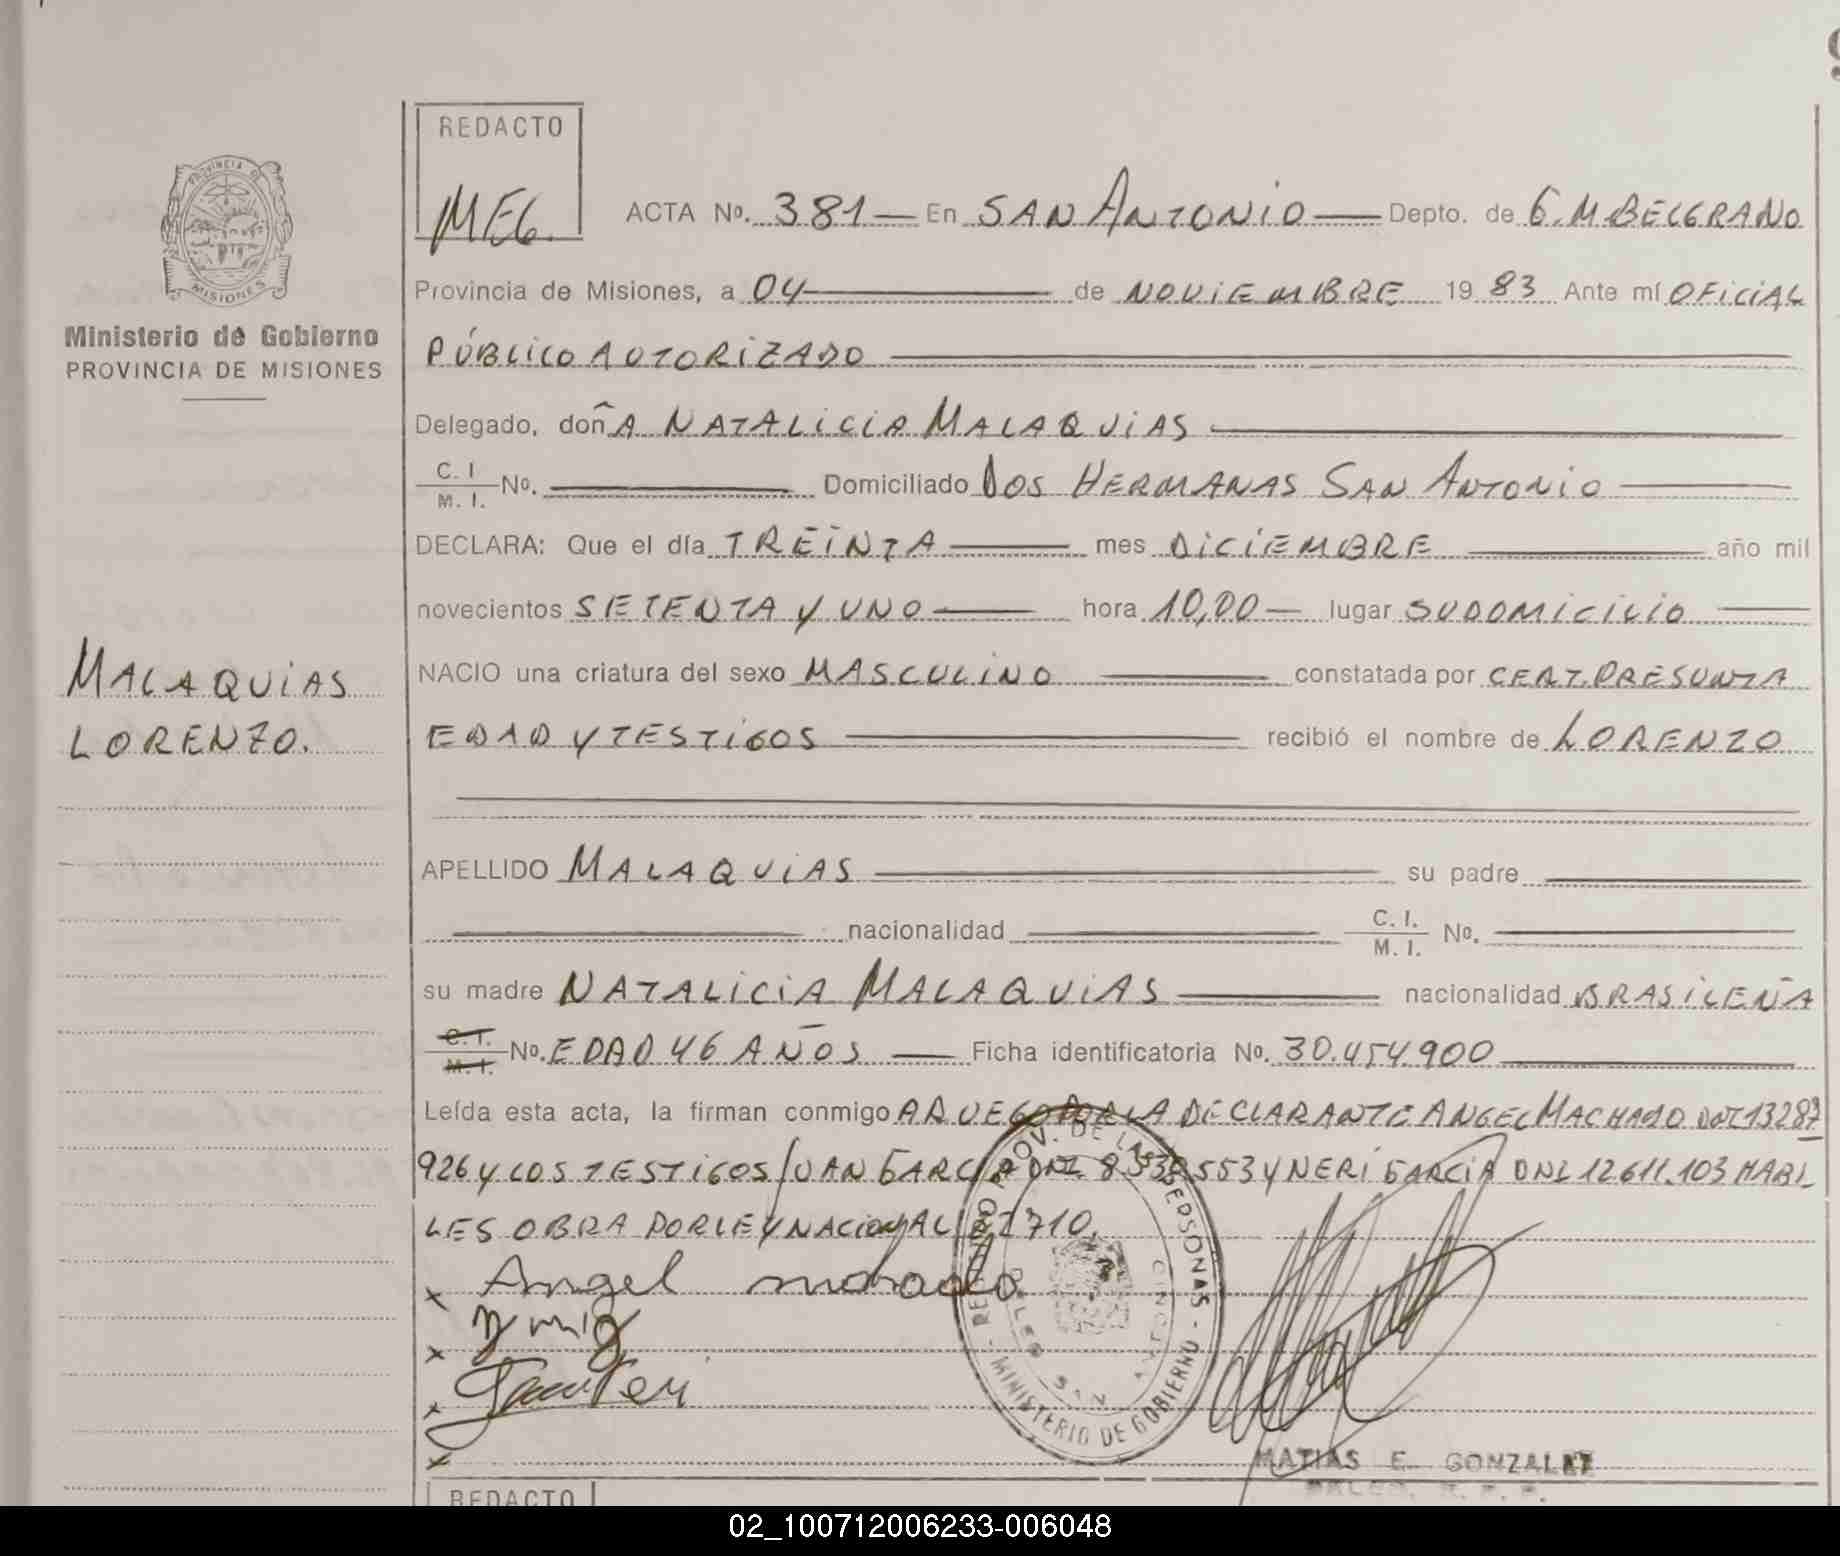 REDACTO
MEG.
PROVINCIA DE
MISIONES
Ministerio de Gobierno
PROVINCIA DE MISIONES
MALAQUIAS
LORENZO.
ACTA No. 381 En SAN ANTONIO Depto. de G. M BELGRANO
Provincia de Misiones, a 04 de NOVIEMBRE 19 83 Ante mí OFICIAL
PÚBLICO AUTORIZADO
Delegado, doñA NATALICIA MALAQUIAS
C. I. / M. I. No. Domiciliado DOS HERMANAS SAN ANTONIO
DECLARA: Que el día TREINTA mes DICIEMBRE año mil
novecientos SETENTA Y UNO hora 10,00 lugar SU DOMICILIO
NACIO una criatura del sexo MASCULINO constatada por CERT. PRESUNTA
EDAD Y TESTIGOS recibió el nombre de LORENZO
APELLIDO MALAQUIAS su padre
nacionalidad C. I. / M. I. No.
su madre NATALICIA MALAQUIAS nacionalidad BRASILEÑA
C. I. / M. I. No. EDAD 46 AÑOS Ficha identificatoria No. 30.454.900
Leída esta acta, la firman conmigo A RUEGO POR LA DECLARANTE ANGEL MACHADO DNI 13287
926 Y LOS TESTIGOS JUAN GARCIA DNI Y NERI GARCIA DNI 12611.103 HABI_
LES OBRA POR LEY NACIONAL
x Angel
x
x
x
REGISTRO PROV. DE LAS PERSONAS - MINISTERIO DE GOBIERNO -
MATIAS E. GONZALEZ
REDACTO
02_100712006233-006048